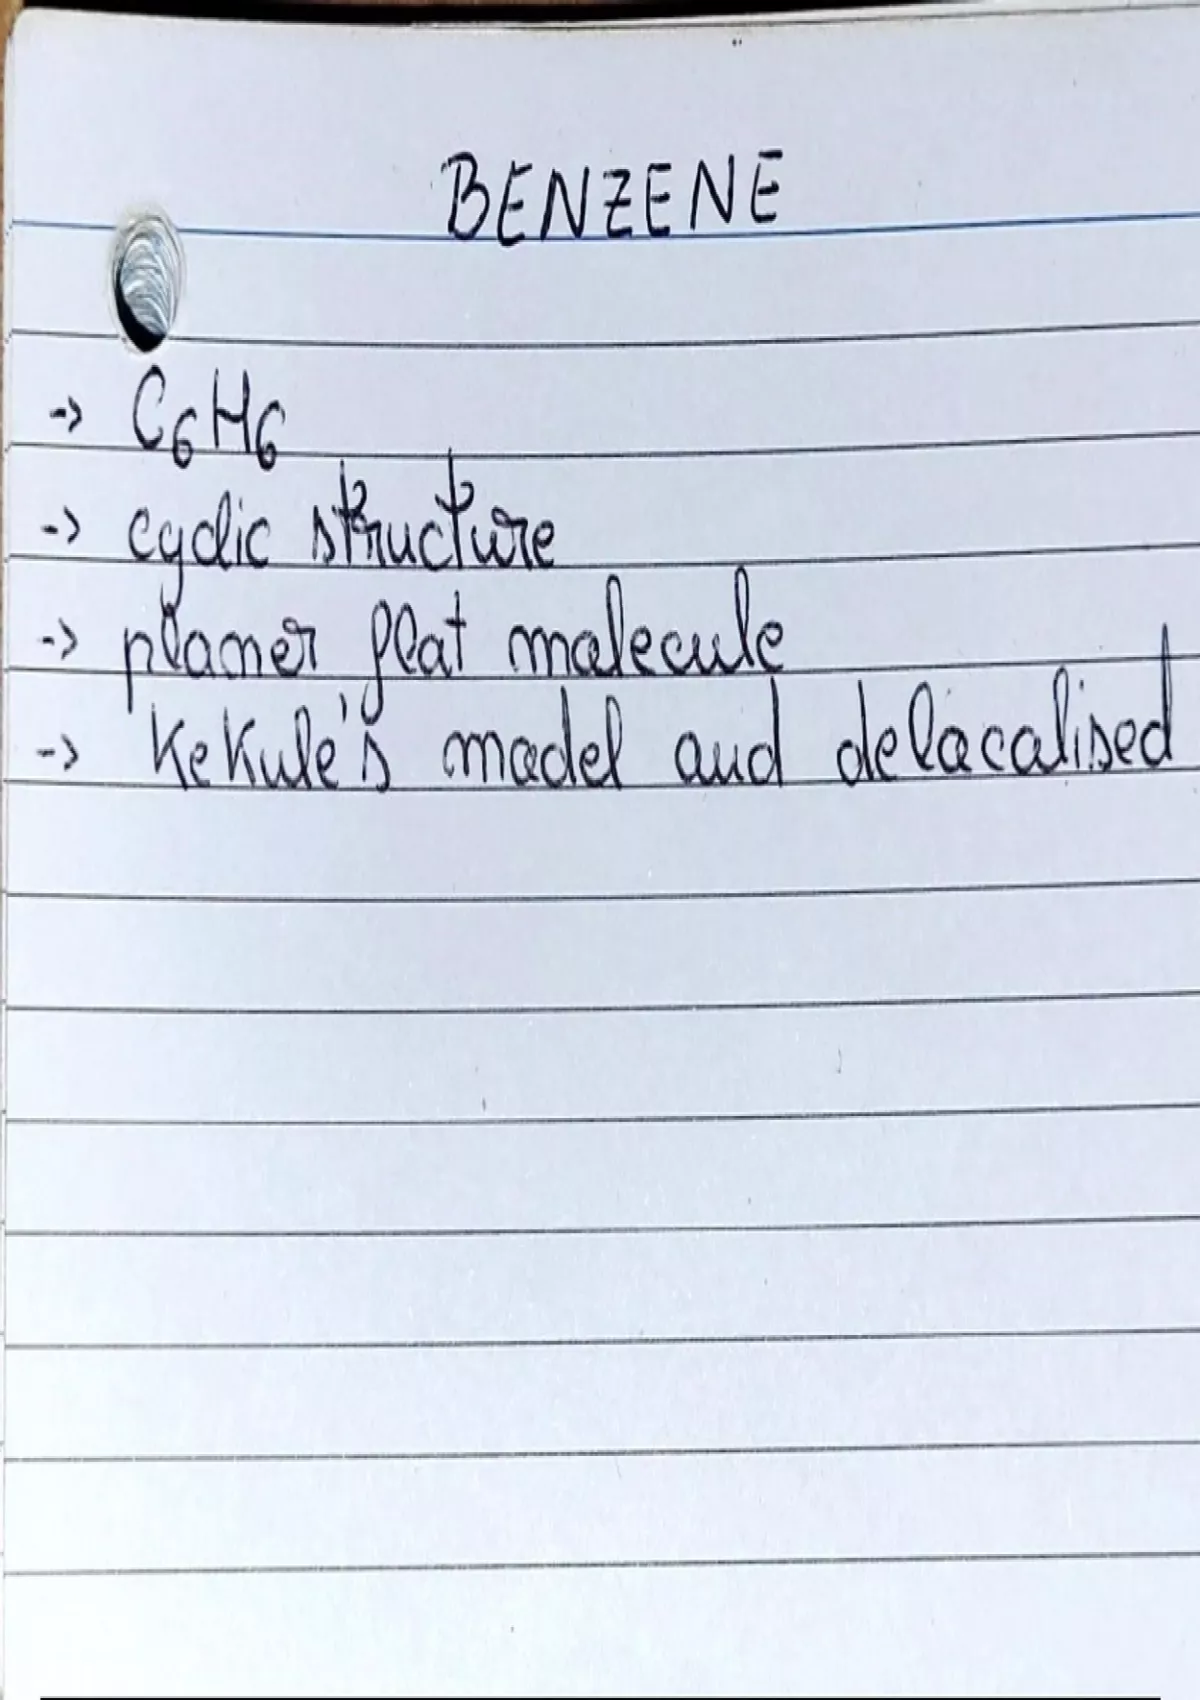 BENZENE
-> C6H6
-> cyclic structure
-> planer flat malecule
-> Kekule's madel and delacalised